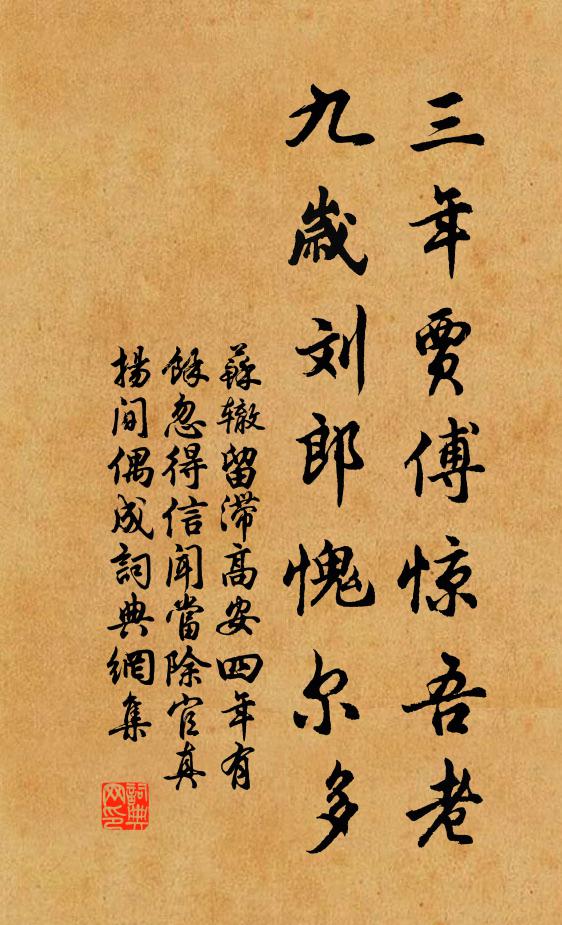 三年贾傅惊吾老
九歲刘郎愧尔多
蘇辙留滞高安四年有
餘忽得信闻當除官真
揚间偶成詞典網集
詞典网印